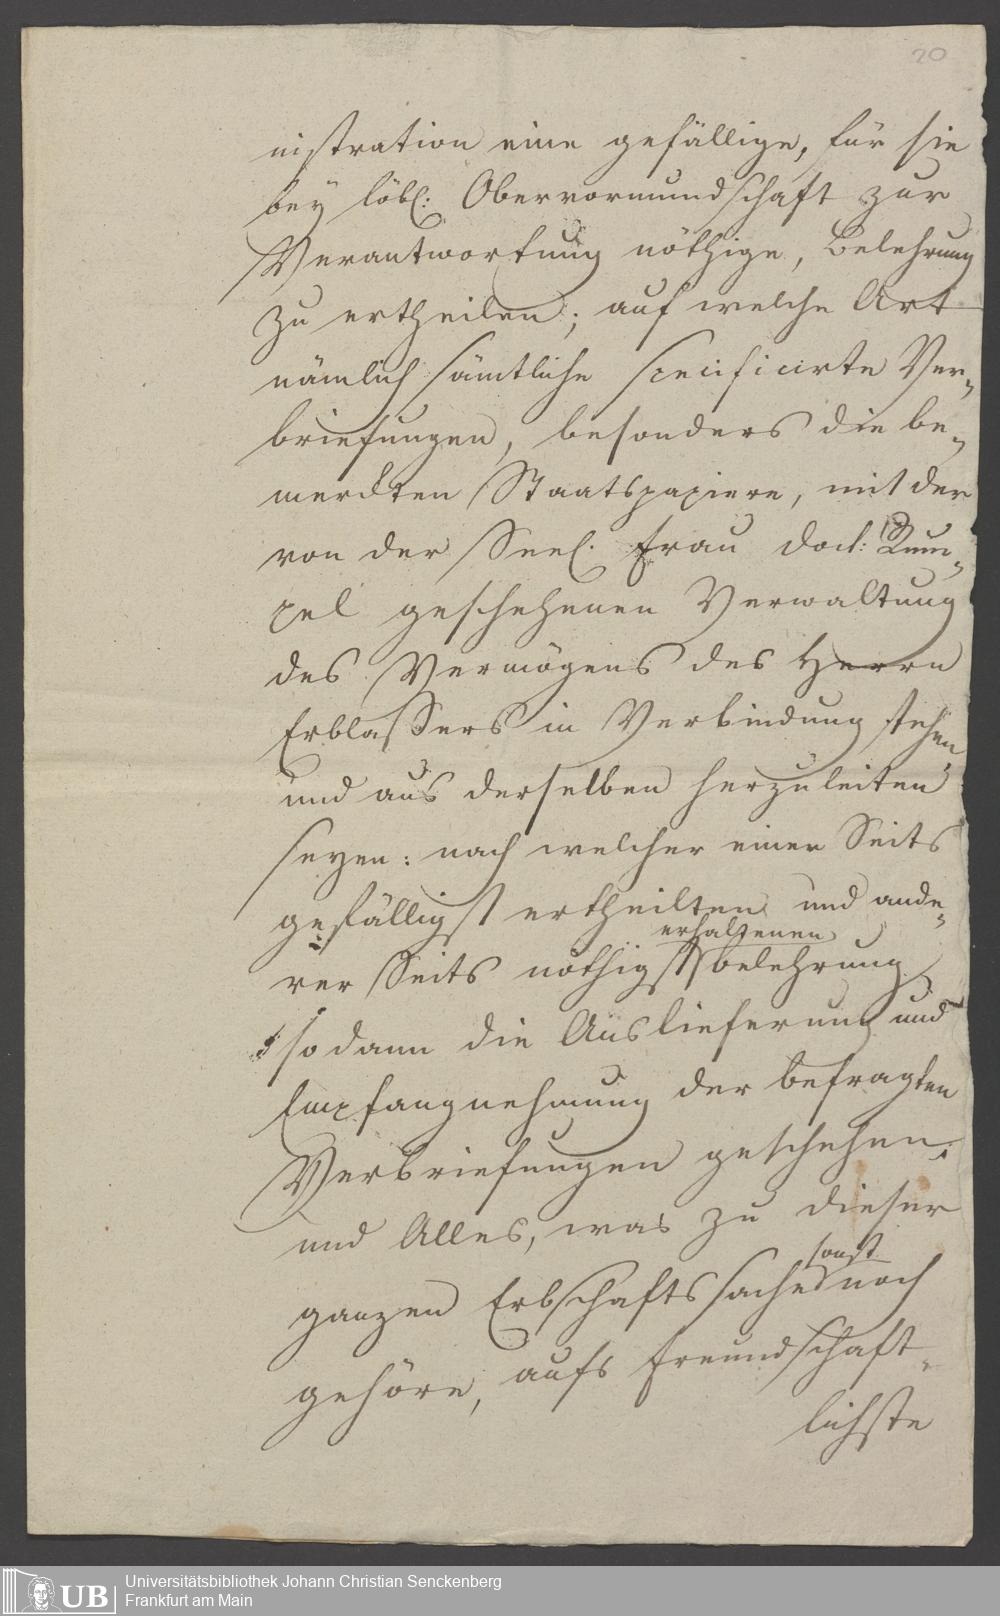 20
nistration eine gefällige, für sie
bey löbl: Obervormundschaft zur
Verantwortung nöthige, Belehrung
zu ertheilen; auf welche Art
nämlich sämtliche specificirte Ver-
briefungen, besonders die be-
merckten Staatspapiere, mit der
von der Seel. Frau Doct: Rum-
pel geschehenen Verwaltung
des Vermögens des Herrn
Erblassers in Verbindung stehen
und aus derselben herzuleiten
seyen: nach welcher einer Seits
gefälligst ertheilten und ande-
erhaltenen
rer Seits nöthigst belehrung
sodann die Auslieferung und
Empfangnehmung der befragten
Verbriefungen geschehen;
und Alles, was zu dieser
sonst
ganzen Erbschaftssache noch
gehöre, aufs freundschaft-
lichste
UB
Universitätsbibliothek Johann Christian Senckenberg
Frankfurt am Main